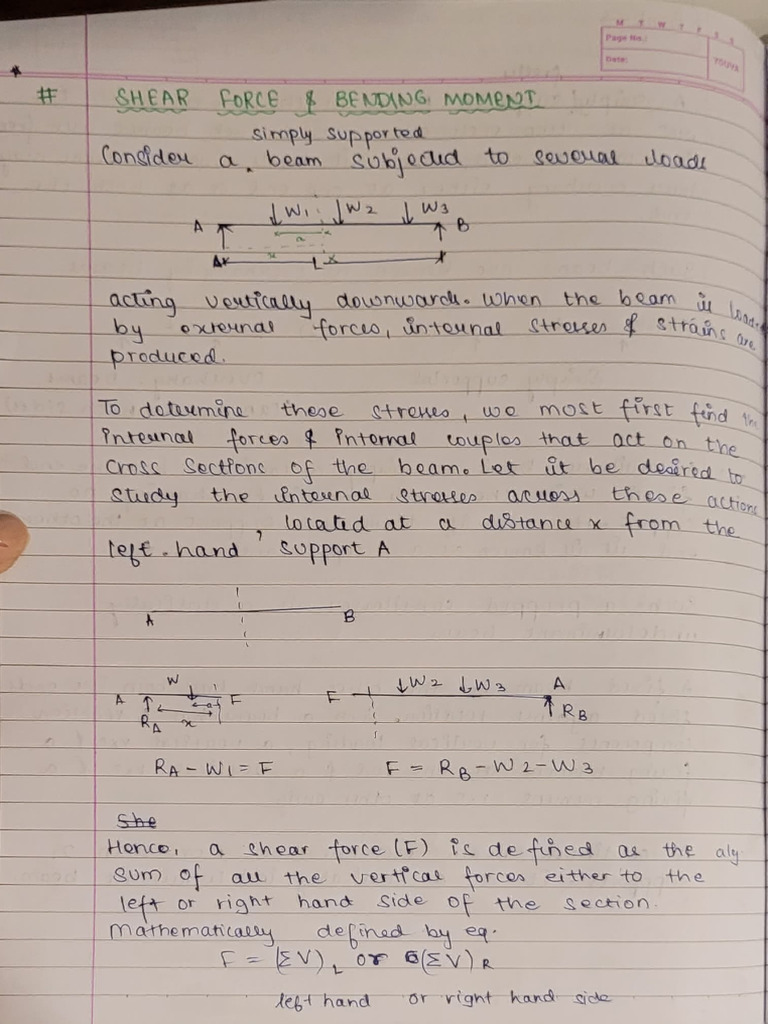 M T W T F S S
Page No.:
Date:
YOUVA
*
# SHEAR FORCE & BENDING MOMENT
simply supported
Consider a beam subjected to several loads
↓W1 ↓W2 ↓W3
A B
a
A x L x
acting vertically downwards. When the beam is load
by external forces, internal stresses & strains are
produced.
To determine these stresses, we most first find the
internal forces & internal couples that act on the
cross sections of the beam. Let it be desired to
study the internal stresses across these actions
, located at a distance x from the
left-hand support A
A B
W ↓W2 ↓W3 A
A F F
a
RA x RB
RA - W1 = F F = RB - W2 - W3
She
Hence, a shear force (F) is defined as the alg
sum of all the vertical forces either to the
left or right hand side of the section.
Mathematically defined by eq.
F = (ΣV)L or (ΣV)R
left hand or right hand side